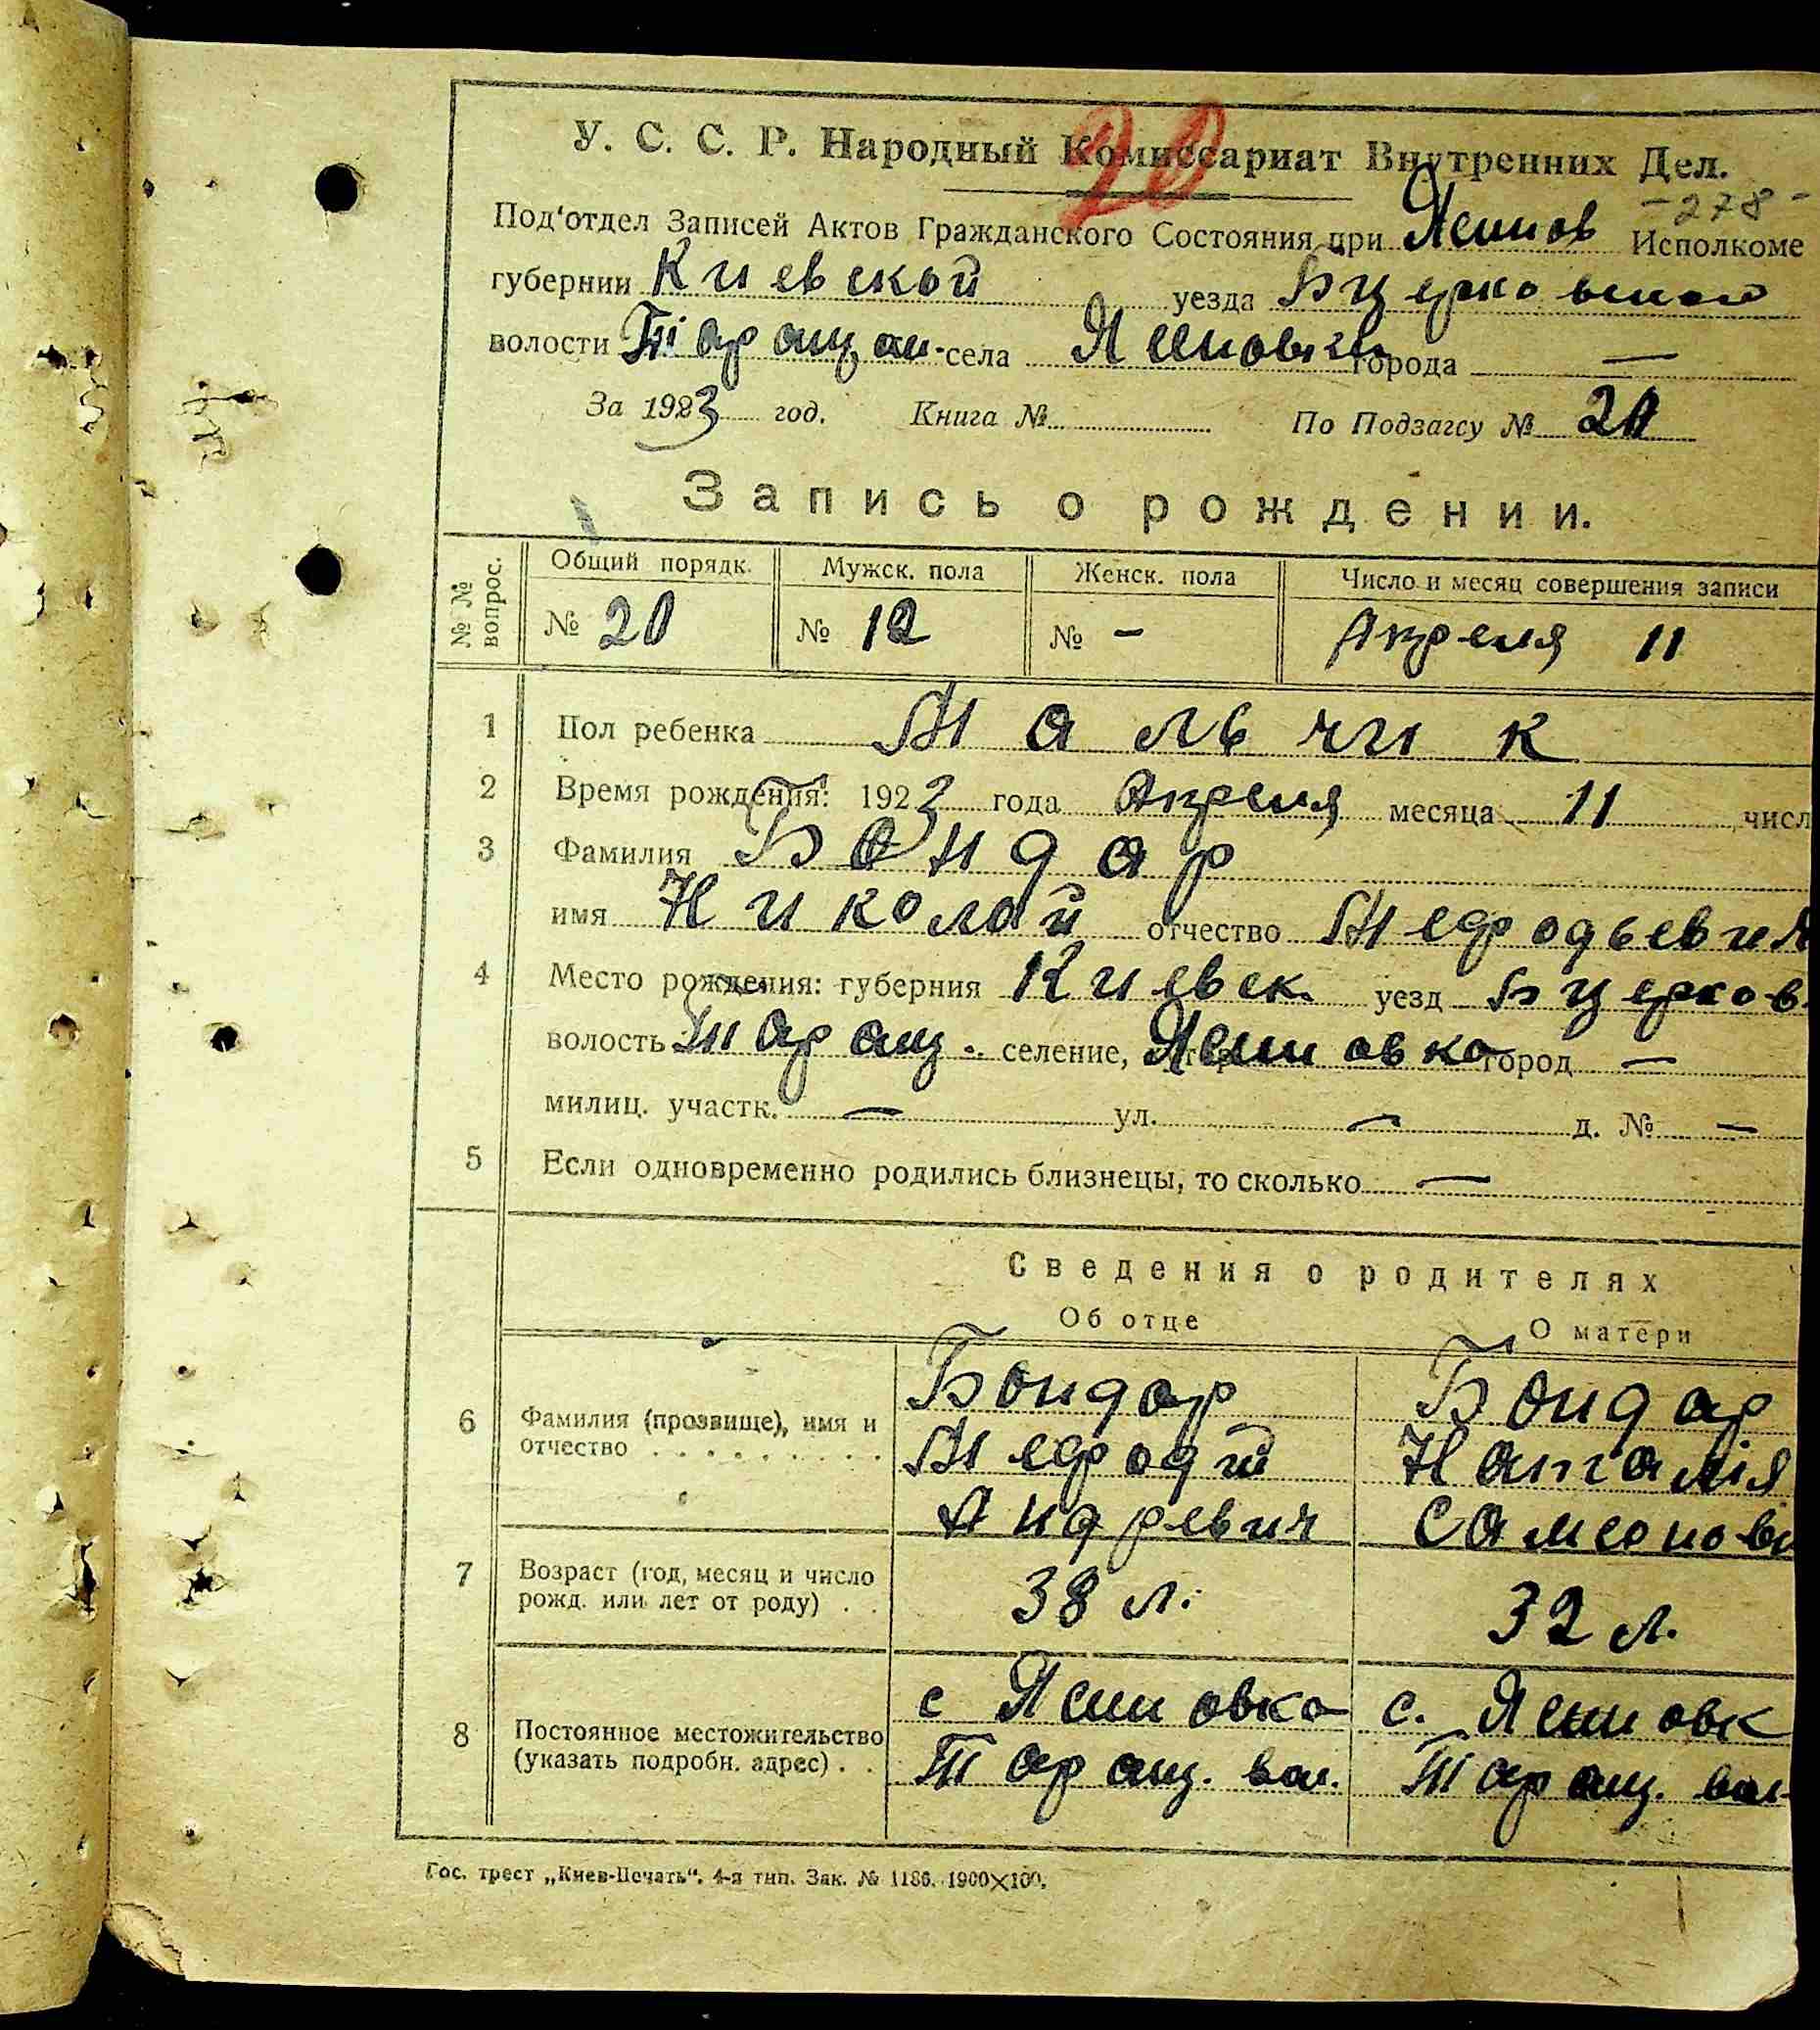 20
У. С. С. Р. Народный Комиссариат Внутренних Дел.
-278-
Под'отдел Записей Актов Гражданского Состояния при Исполкоме
губернии Киевской уезда Бцерковской
волости Таращан. села города —
За 1923 год. Книга № По Подзагсу № 20
Запись о рождении.
№ № вопрос. Общий порядк. Мужск. пола Женск. пола Число и месяц совершения записи
№ 20 № 12 № - Апреля 11
1 Пол ребенка Мальчик
2 Время рождения: 1923 года Апреля месяца 11 числ
3 Фамилия Бондар
имя Николай отчество Мефодьевич
4 Место рождения: губерния Киевск. уезд Бцерков.
волость Таращ. селение, Ясиновка город —
милиц. участк. — ул. — д. № —
5 Если одновременно родились близнецы, то сколько —
Сведения о родителях
Об отце О матери
6 Фамилия (прозвище), имя и отчество . . . . . . . . .
Бондар
Мефодий
Андревич
Бондар
Наталія
Самсонов
7 Возраст (год, месяц и число рожд. или лет от роду) . . 38 л. 32 л.
8 Постоянное местожительство (указать подробн. адрес) . .
с Ясиновка
Таращ. вол.
с. Ясиновк
Таращ. вол.
Гос. трест „Киев-Печать“. 4-я тип. Зак. № 1186. 1900×100.